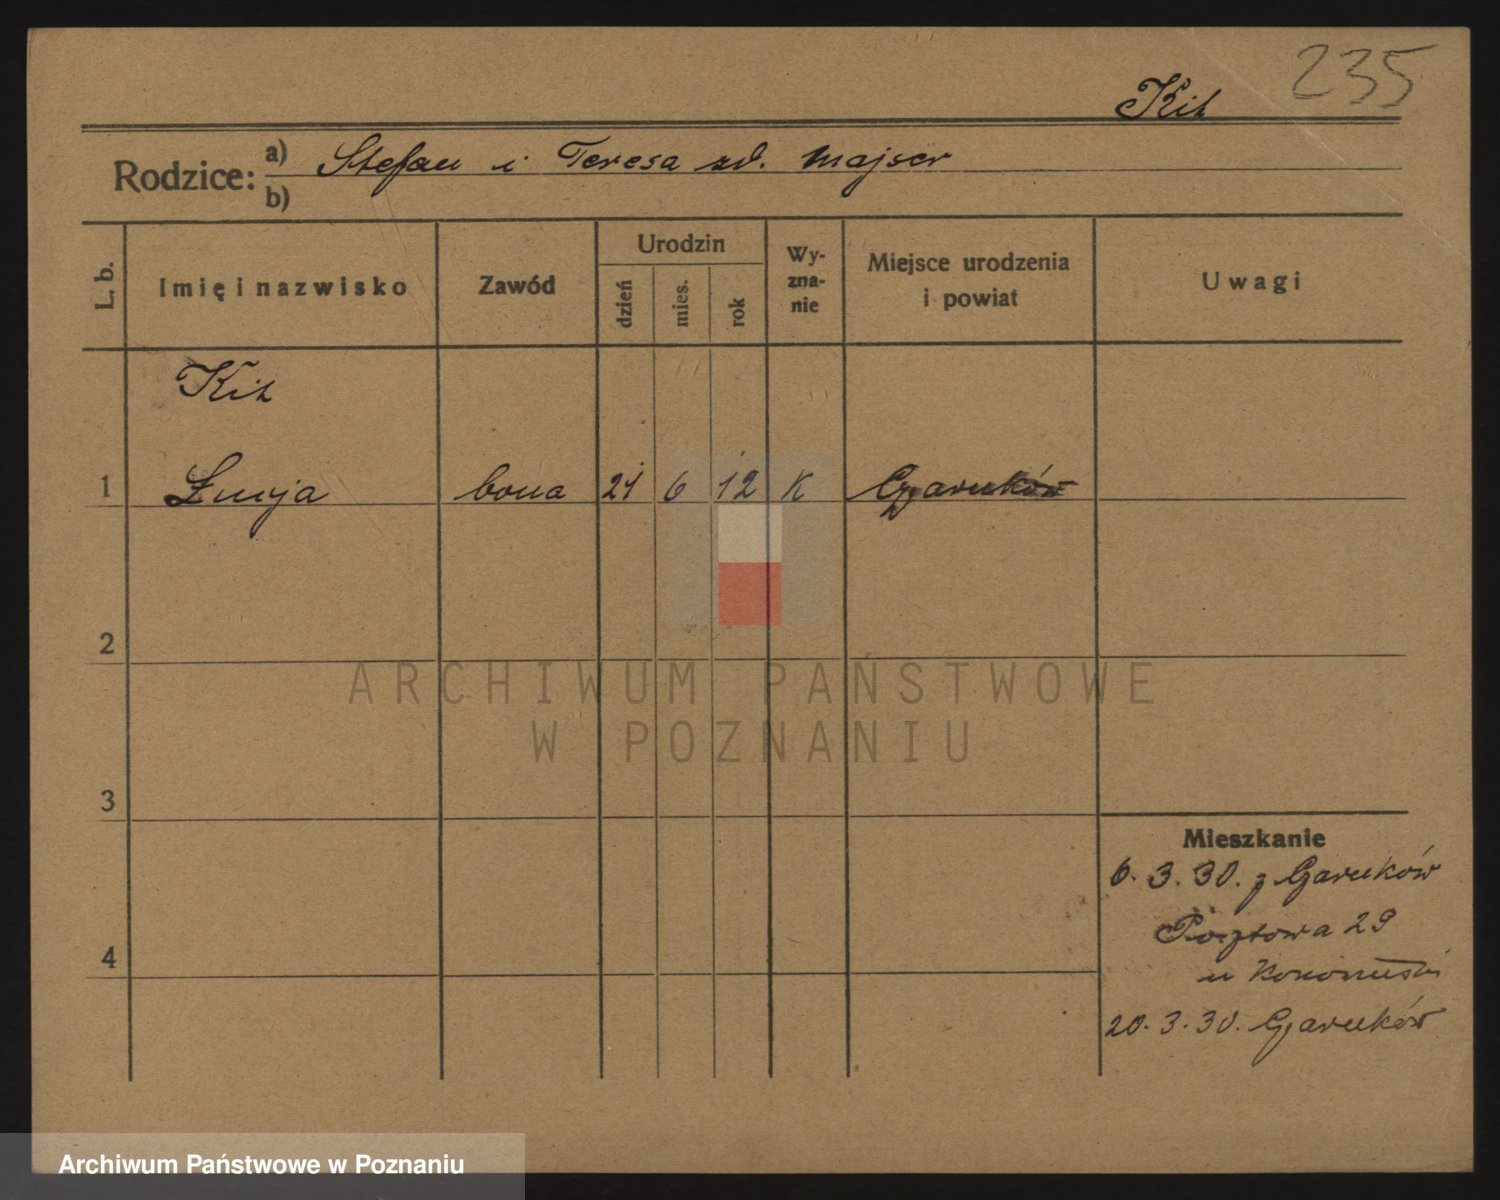 235
Kit
Rodzice: a) Stefan i Teresa zd. Majser
b)
L. b. Imię i nazwisko Zawód Urodzin dzień mies. rok Wy-zna-nie Miejsce urodzenia i powiat Uwagi
Kit
1 Łucja bona 21 6 12 K Czarnków
2
ARCHIWUM PAŃSTWOWE
W POZNANIU
3
Mieszkanie
6. 3. 30. z Czarnków
Pocztowa 29
u
4
20. 3. 30. Czarnków
Archiwum Państwowe w Poznaniu